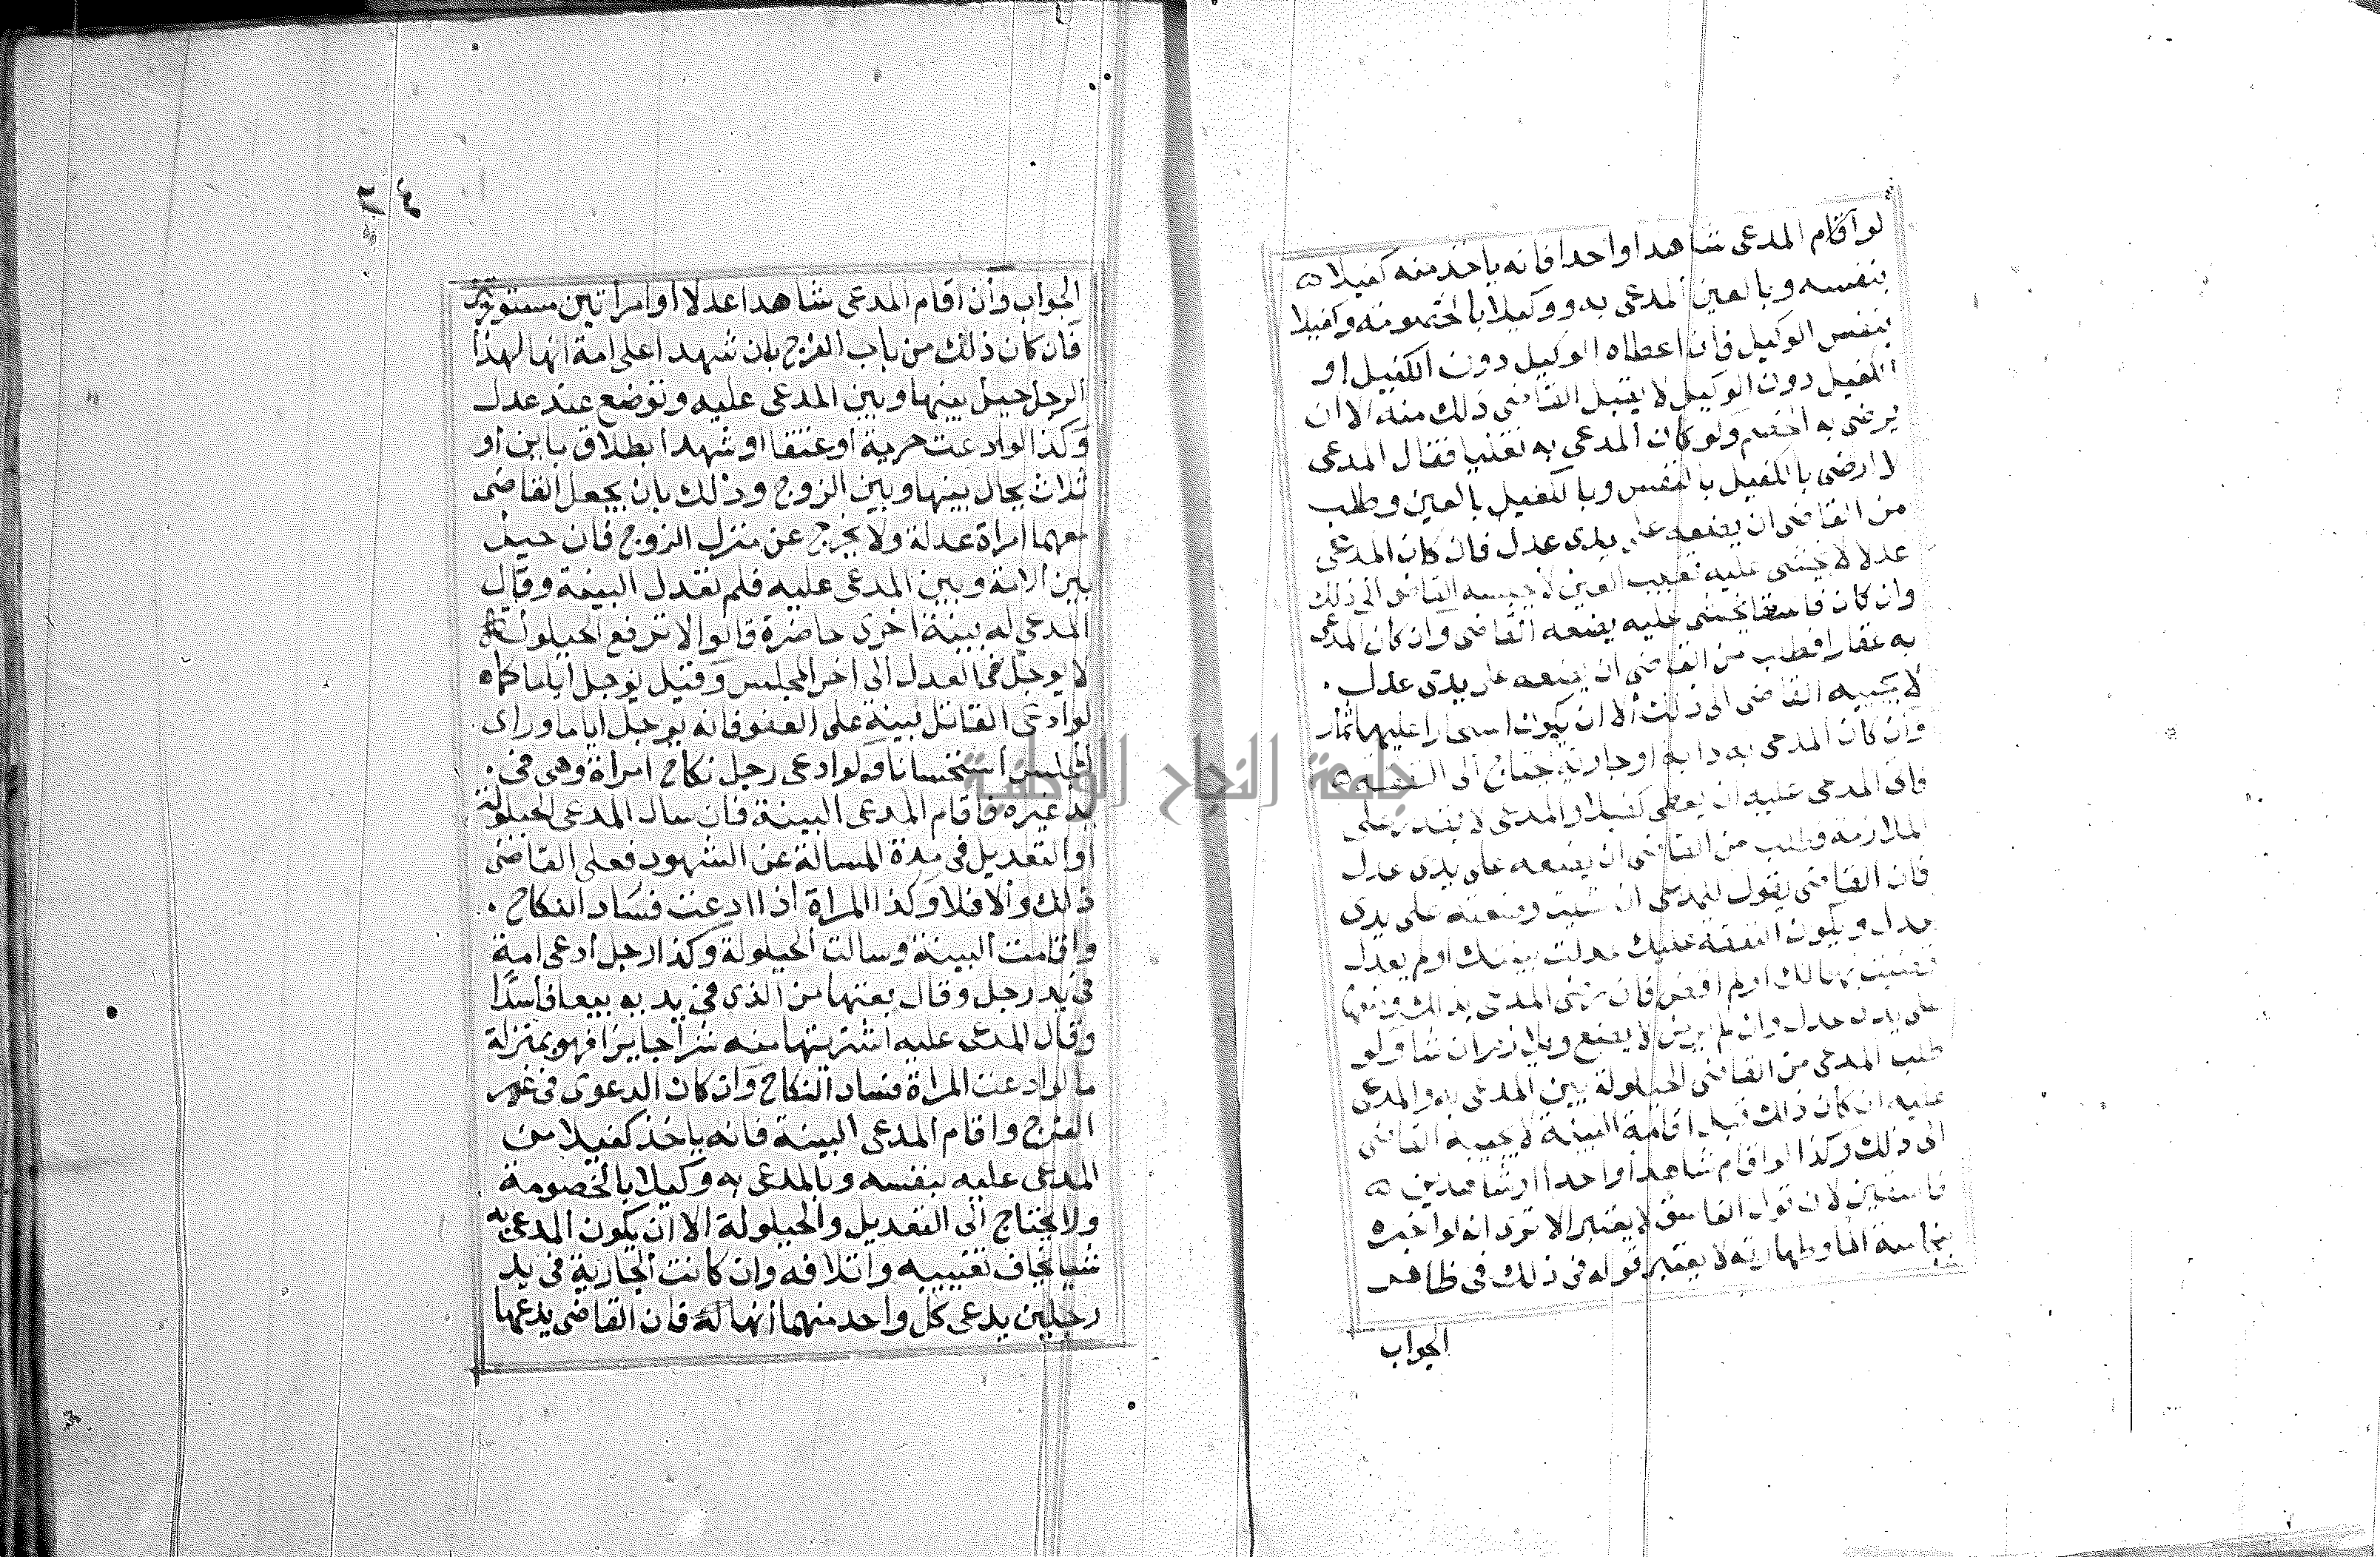 لو اقام المدعى شاهدا واحدا فانه ياخذ منه كفيلا
بنفسه وبالعين المدعى به ووكيلا بالخصومة وكفيلا
بنفس الوكيل فان اعطاه الوكيل دون الكفيل او
الكفيل دون الوكيل لا يقبل القاضى ذلك منه الا ان
يرضى به الخصم ولو كان المدعى به نقليا فقال المدعى
لا ارضى بالكفيل بالنفس وبالكفيل بالعين وطلب
من القاضى ان يضعه على يدى عدل فان كان المدعى
عدلا لا يخشى عليه تغييب العين لا يجيبه القاضى الى ذلك
وان كان فاسقا يخشى عليه يضعه القاضى وان كان المدعى
به عقارا فطلب من القاضى ان يضعه على يدى عدل
لا يجيبه القاضى الى ذلك الا ان يكون اشجارا عليها ثمار
وان كان المدعى به دابة او جارية تحتاج الى النفقة
فابى المدعى عليه ان يعطى كفيلا والمدعى لا يقدر على
الملازمة وطلب من القاضى ان يضعه على يدى عدل
فان القاضى يقول للمدعى ان شيت وضعته على يدى
عدل ويكون النفقة عليك عدلت بينتك او لم يعدل
قضيت بها لك او لم اقض فان رضى المدعى بذلك وضعها
على يدى عدل وان لم يرض لا يضع ويلازم ان شا ولو
طلب المدعى من القاضى الحيلولة بين المدعى به والمدعى
عليه ان كان ذلك قبل اقامة البينة لا يجيبه القاضى
الى ذلك وكذا لو اقام شاهدا واحدا او شاهدين
فاسقين لان قول الفاسق لا يعتبر الا ترى انه لو اخبر
بنجاسة الما وطهارته لا يعتبر قوله فى ذلك فى ظاهر
الجواب
الجواب وان اقام المدعى شاهدا عدلا او امراتين مستورتين
فان كان ذلك من باب الفرج بان شهدا على امة انها لهذا
الرجل حيل بينها وبين المدعى عليه وتوضع عند عدل
وكذا لو ادعت حرية او عتقا او شهدا بطلاق باين او
ثلاث يحال بينها وبين الزوج وذلك بان يجعل القاضى
معهما امراة عدلة ولا يخرج عن منزل الزوج فان حيل
بين الامة وبين المدعى عليه فلم تعدل البينة وقال
المدعى له بينة اخرى حاضرة قالوا لا ترفع الحيلولة
لا يوجل فى العدل الى اخر المجلس وقيل يوجل اياما كما
لو ادعى القاتل بينة على العفو فانه يوجل اياما وراى
المجلس استحسانا ولو ادعى رجل نكاح امراة وهى فى
يد غيره فاقام المدعى البينة فان سال المدعى الحيلولة
او التعديل فى مدة المسالة عن الشهود فعلى القاضى
ذلك والا فلا وكذا المراة اذا ادعت فساد النكاح
واقامت البينة وسالت الحيلولة وكذا رجل ادعى امة
فى يد رجل وقال بعتها من الذى فى يديه بيعا فاسدا
وقال المدعى عليه اشتريتها منه شرا جايزا فهو بمنزلة
ما لو ادعت المراة فساد النكاح وان كان الدعوى فى غير
الفرج واقام المدعى البينة فانه ياخذ كفيلا من
المدعى عليه بنفسه وبالمدعى به وكيلا بالخصومة
ولا يحتاج الى التعديل والحيلولة الا ان يكون المدعى به
شيا يخاف تغييبه واتلافه وان كانت الجارية فى يد
رجلين يدعى كل واحد منهما انها له فان القاضى يدعها
جامعة النجاح الوطنية